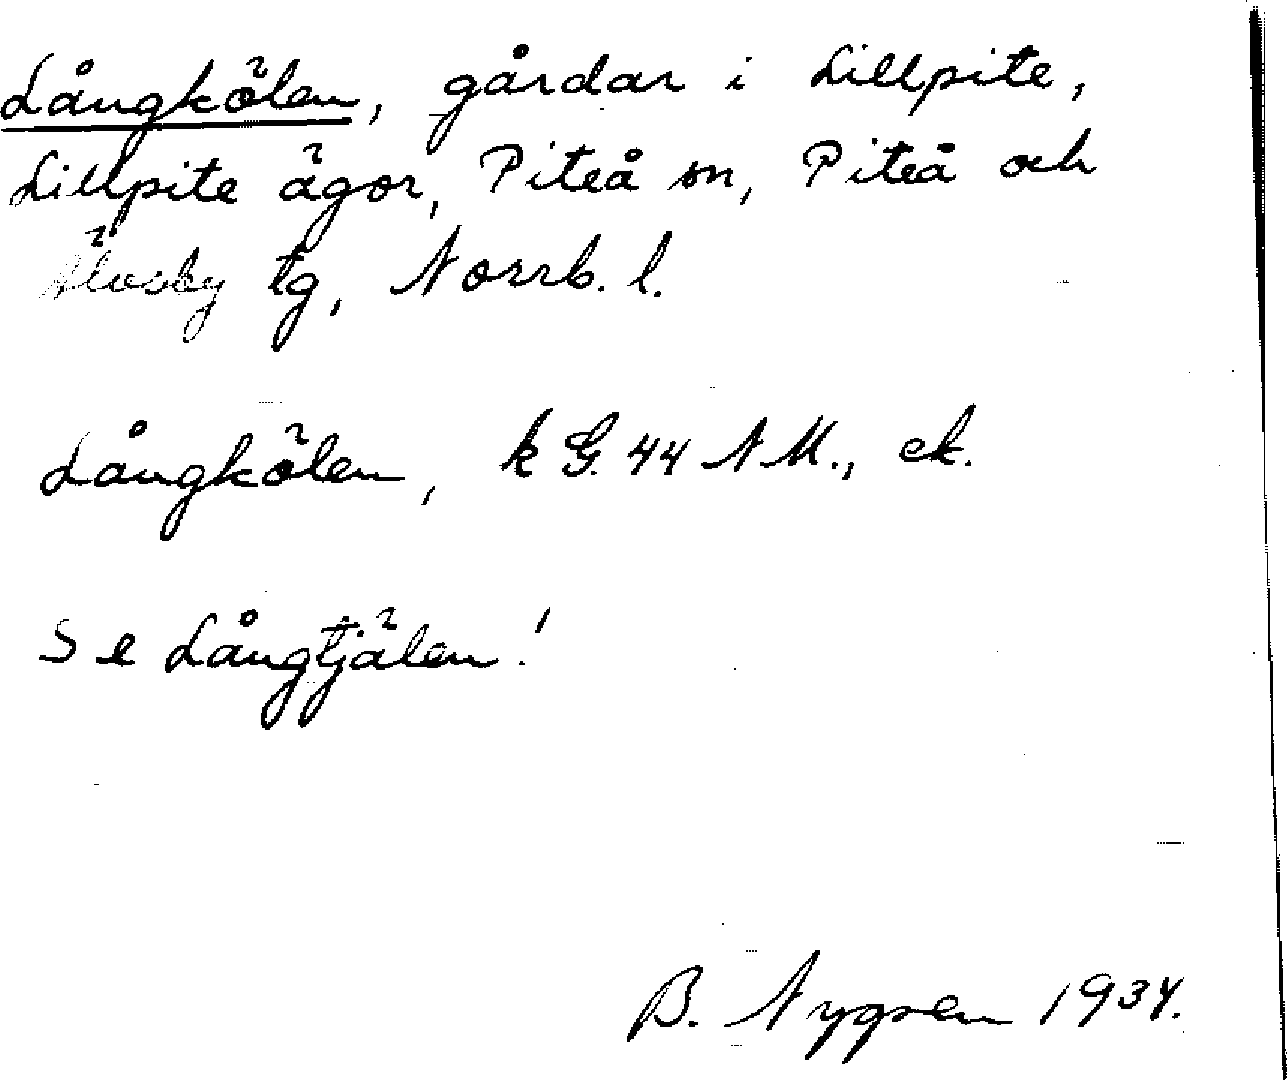 Långkölen, gårdar i Lillpite,
Lillpite ägor, Piteå sn, Piteå och
Älvsby tg, Norrb. l.
Långkölen, k G. 44 NM., ek.
Se Långtjälen!
B. Nygren 1934.